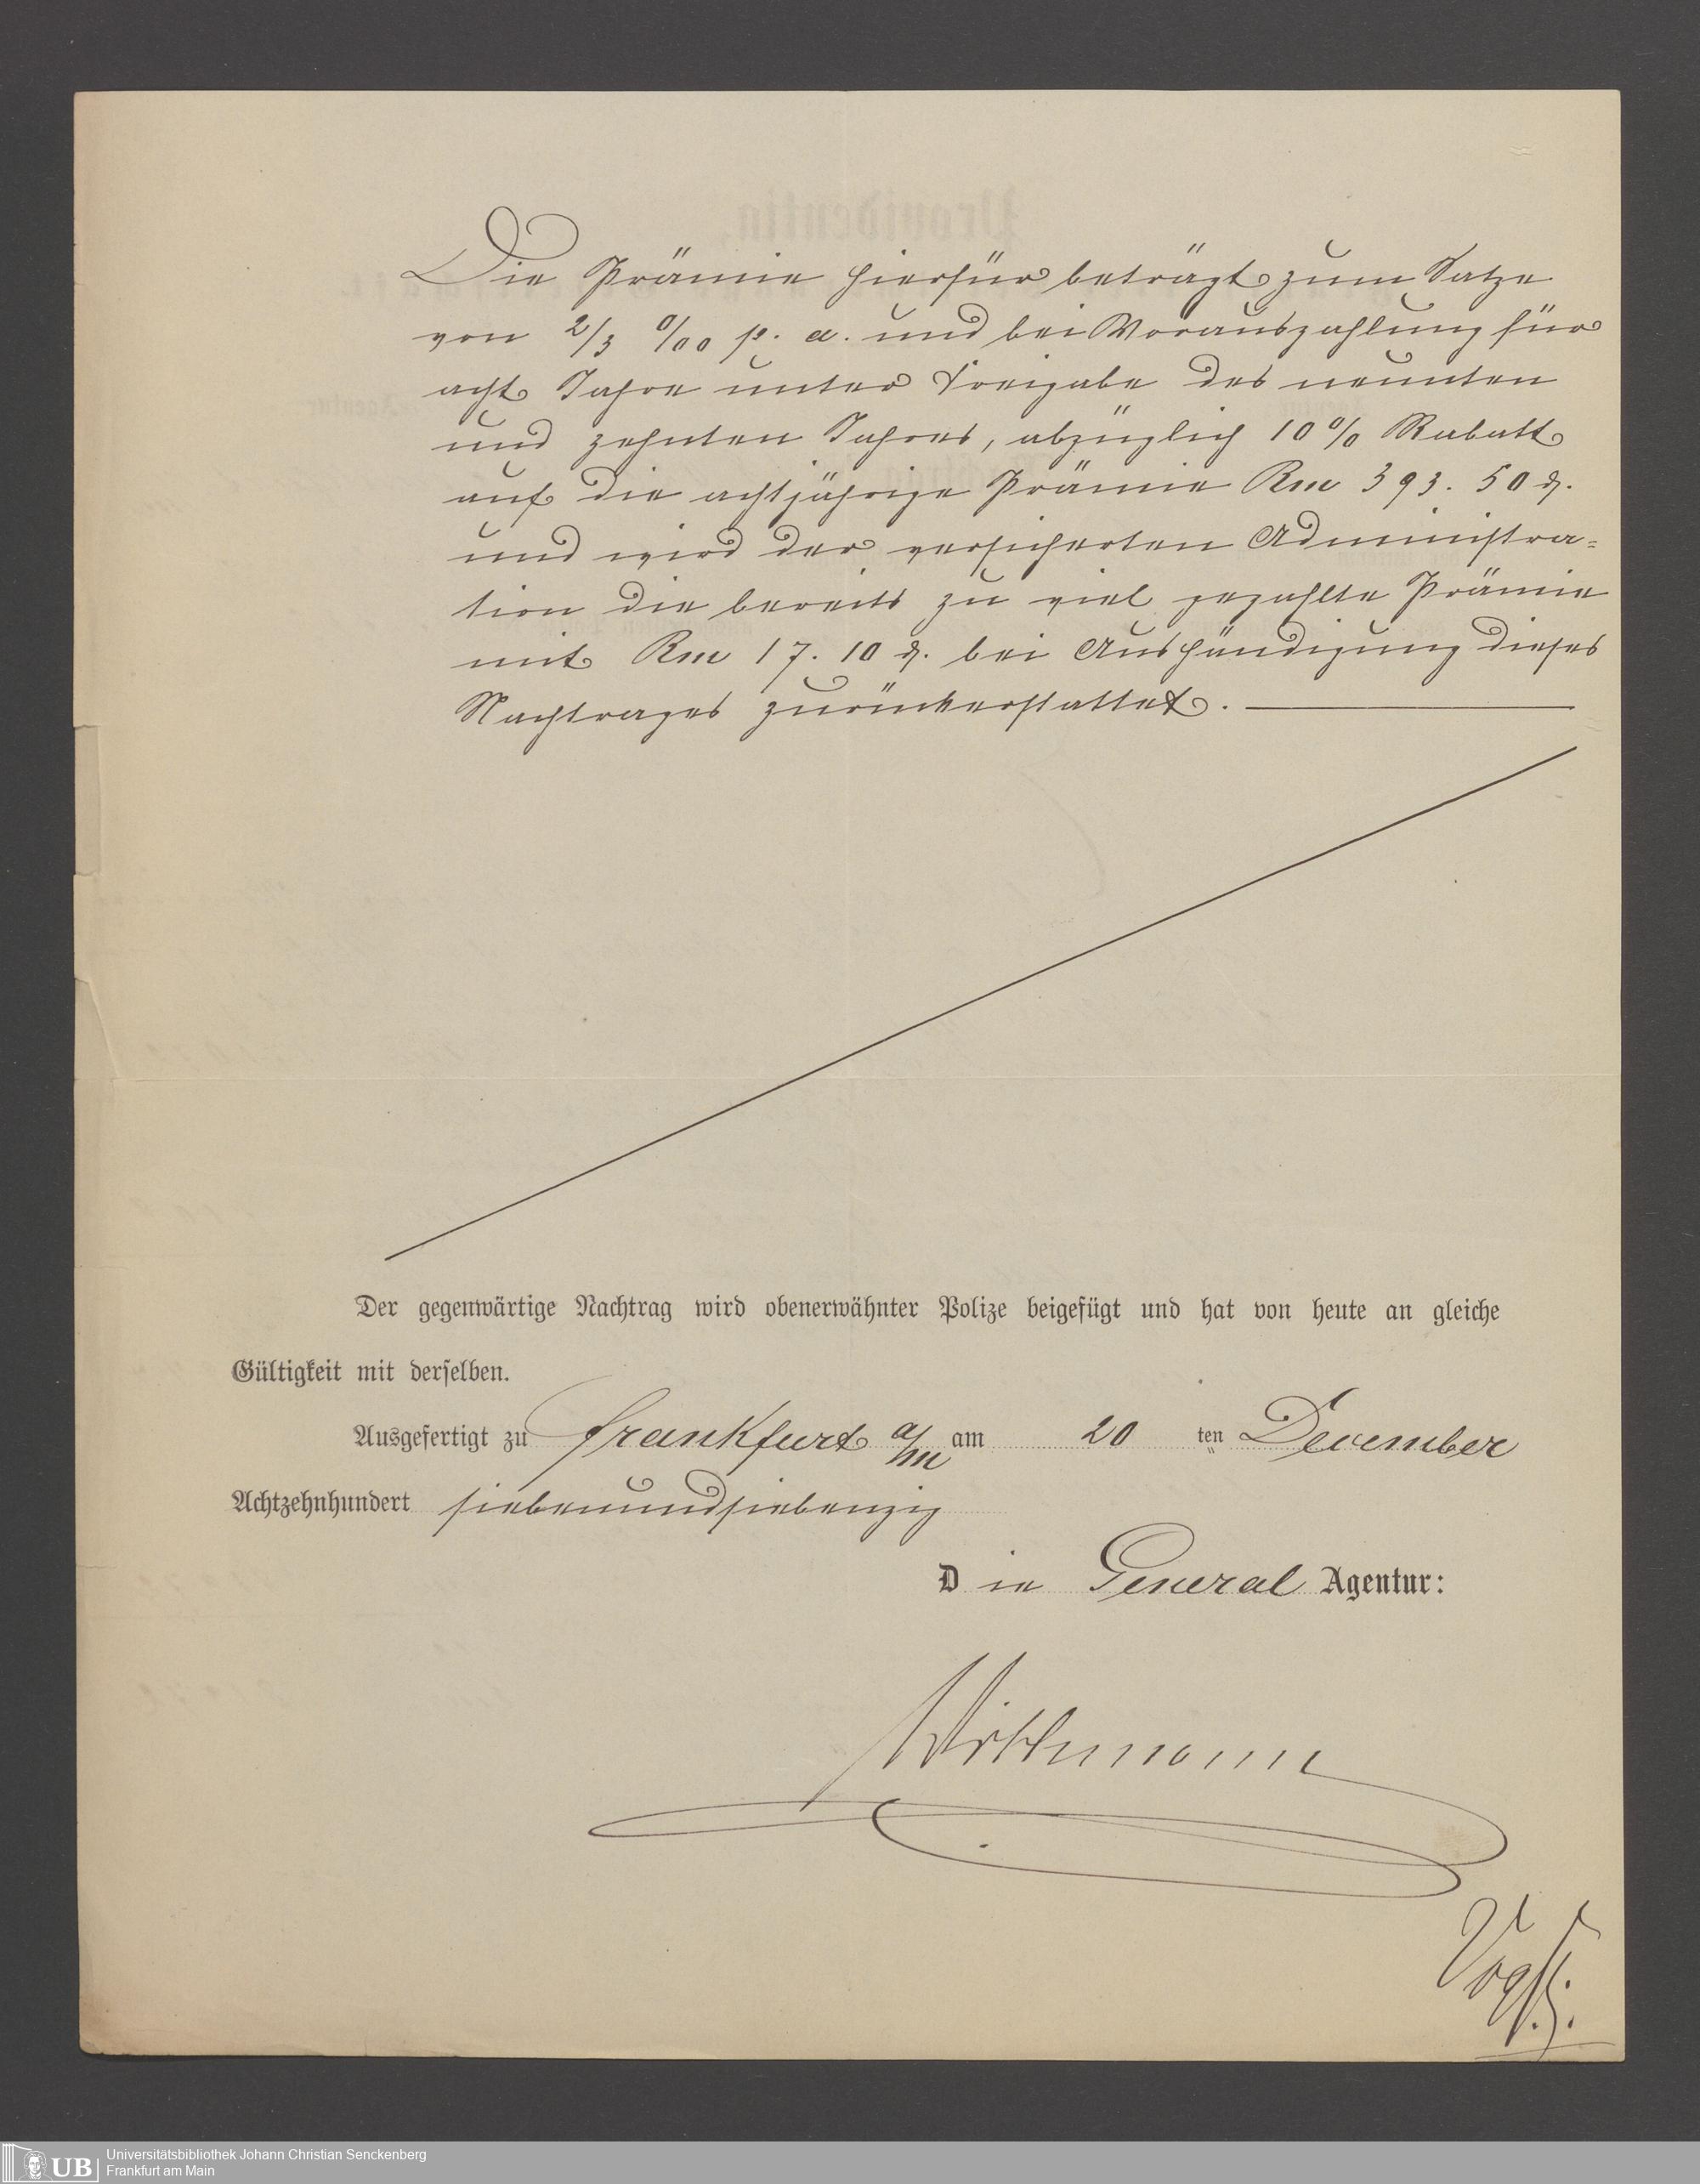 Die Prämie hierfür beträgt zum Satze
von 2/3 ‰ p. a. und bei Vorauszahlung für
acht Jahre unter Freigabe des neunten
und zehnten Jahres, abzüglich 10 % Rabatt
auf die achtjährige Prämie Rm 393. 50 ₰.
und wird der versicherten Administra=
tion die bereits zu viel gezahlte Prämie
mit Rm 17. 10 ₰. bei Aushändigung dieses
Nachtrages zurückerstattet.
Der gegenwärtige Nachtrag wird obenerwähnter Polize beigefügt und hat von heute an gleiche
Gültigkeit mit derselben.
Ausgefertigt zu Frankfurt a/m am 20 ten December
Achtzehnhundert siebenundsiebenzig
Die General Agentur:
UB Universitätsbibliothek Johann Christian Senckenberg
Frankfurt am Main